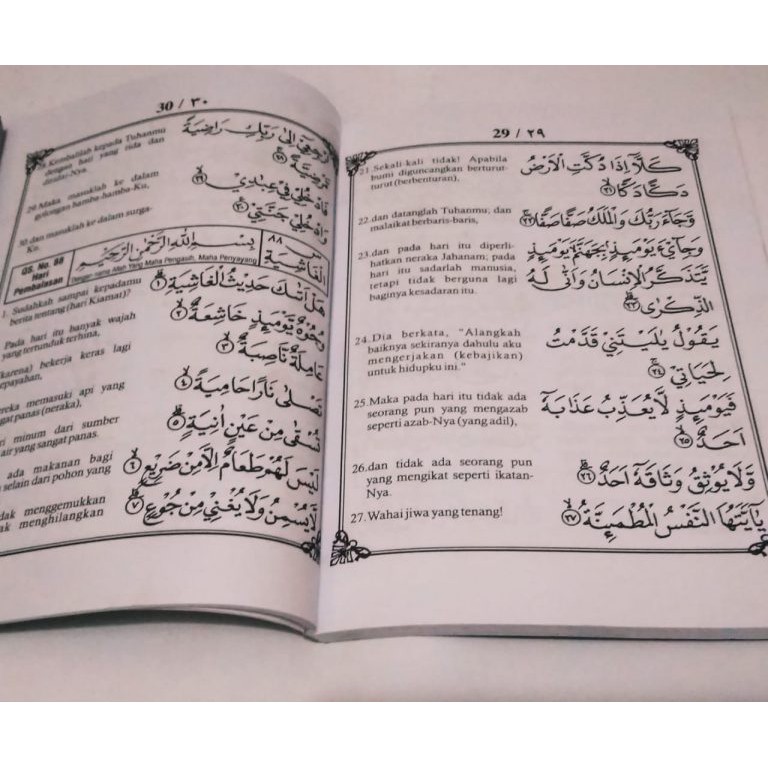 29 / ٢٩
كَلَّآ اِذَا دُكَّتِ الْاَرْضُ
دَكًّا دَكًّا ۙ ٢١
21.Sekali-kali tidak! Apabila
bumi diguncangkan berturut-
turut (berbenturan),
وَجَآءَ رَبُّكَ وَالْمَلَكُ صَفًّا صَفًّا ۚ ٢٢
22.dan datanglah Tuhanmu; dan
malaikat berbaris-baris,
وَجِايْۤءَ يَوْمَىِٕذٍ بِجَهَنَّمَ يَوْمَىِٕذٍ
يَّتَذَكَّرُ الْاِنْسَانُ وَاَنّٰى لَهُ
الذِّكْرٰى ۗ ٢٣
23.dan pada hari itu diperli-
hatkan neraka Jahanam; pada
hari itu sadarlah manusia,
tetapi tidak berguna lagi
baginya kesadaran itu.
يَقُوْلُ يٰلَيْتَنِيْ قَدَّمْتُ
لِحَيَاتِيْ ۚ ٢٤
24.Dia berkata, "Alangkah
baiknya sekiranya dahulu aku
mengerjakan (kebajikan)
untuk hidupku ini."
فَيَوْمَىِٕذٍ لَّا يُعَذِّبُ عَذَابَهٗٓ
اَحَدٌ ۙ ٢٥
25.Maka pada hari itu tidak ada
seorang pun yang mengazab
seperti azab-Nya (yang adil),
وَّلَا يُوْثِقُ وَثَاقَهٗٓ اَحَدٌ ۗ ٢٦
26.dan tidak ada seorang pun
yang mengikat seperti ikatan-
Nya.
يٰٓاَيَّتُهَا النَّفْسُ الْمُطْمَىِٕنَّةُ ۙ ٢٧
27.Wahai jiwa yang tenang!
30 / ٣٠
ارْجِعِيْٓ اِلٰى رَبِّكِ رَاضِيَةً
مَّرْضِيَّةً ۚ ٢٨
Kembalilah kepada Tuhanmu
dengan hati yang rida dan
diridai-Nya.
فَادْخُلِيْ فِيْ عِبٰدِيْ ۙ ٢٩
29.Maka masuklah ke dalam
golongan hamba-hamba-Ku,
وَادْخُلِيْ جَنَّتِيْ ࣖ ٣٠
30.dan masuklah ke dalam surga-
Ku.
س ٨٨
الْغَاشِيَة
بِسْمِ اللّٰهِ الرَّحْمٰنِ الرَّحِيْمِ
Dengan nama Allah Yang Maha Pengasih, Maha Penyayang
QS. No. 88
Hari
Pembalasan
هَلْ اَتٰىكَ حَدِيْثُ الْغَاشِيَةِ ۗ ١
1. Sudahkah sampai kepadamu
berita tentang (hari Kiamat)?
وُجُوْهٌ يَّوْمَىِٕذٍ خَاشِعَةٌ ۙ ٢
Pada hari itu banyak wajah
yang tertunduk terhina,
عَامِلَةٌ نَّاصِبَةٌ ۙ ٣
(karena) bekerja keras lagi
kepayahan,
تَصْلٰى نَارًا حَامِيَةً ۙ ٤
mereka memasuki api yang
panas (neraka),
تُسْقٰى مِنْ عَيْنٍ اٰنِيَةٍ ۗ ٥
minum dari sumber
air yang sangat panas.
لَيْسَ لَهُمْ طَعَامٌ اِلَّا مِنْ ضَرِيْعٍ ۙ ٦
ada makanan bagi
selain dari pohon yang
لَّا يُسْمِنُ وَلَا يُغْنِيْ مِنْ جُوْعٍ ۗ ٧
menggemukkan
menghilangkan